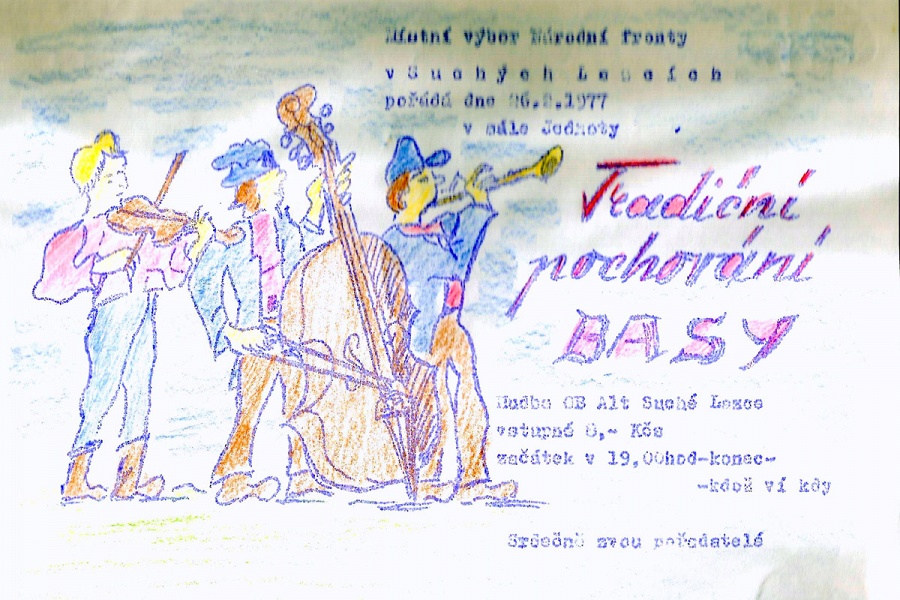 Místní výbor Národní fronty
v Suchých Lazcích
pořádá dne 26.2.1977
v sále Jednoty
Tradiční
pochování
BASY
Hudba OB Alt Suché Lazce
vstupné 8,- Kčs
začátek v 19,00hod-konec-
-kdož ví kdy
Srdečně zvou pořadatelé